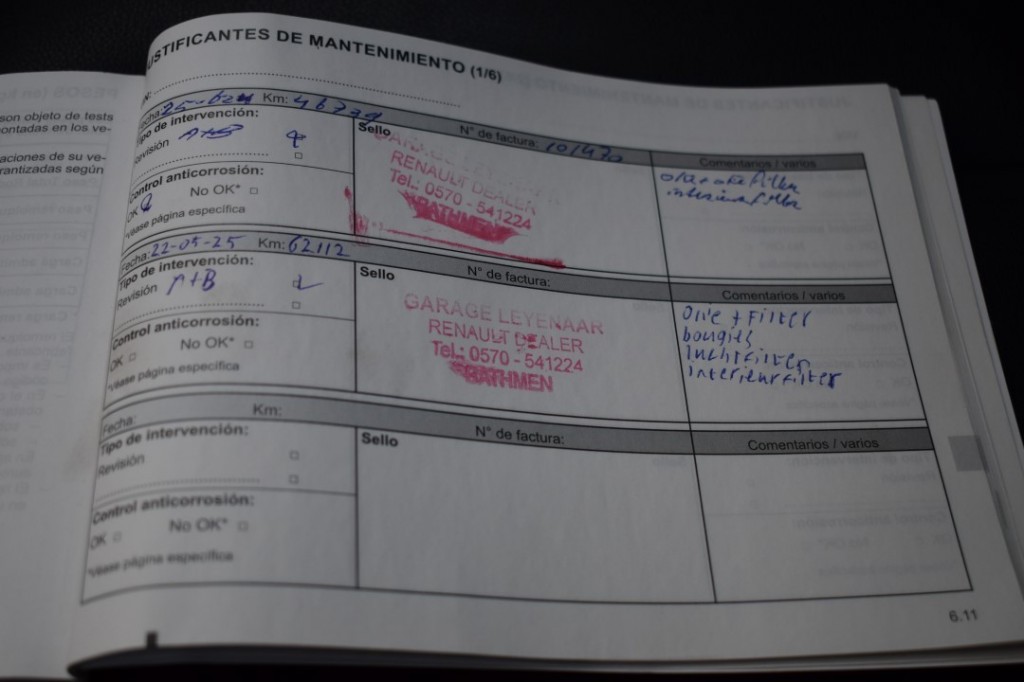 JUSTIFICANTES DE MANTENIMIENTO (1/6)
son objeto de tests
ontadas en los ve-
aciones de su ve-
rantizadas según
Fecha: Km: 46779
Tipo de intervención: A+B
Revisión
Control anticorrosión:
No OK*
OK
*Véase página específica
Sello
N° de factura: 101470
GARAGE LEYENAAR
RENAULT DEALER
Tel.: 0570 - 541224
BATHMEN
Comentarios / varios
interieurfilter
Fecha: 22-05-25 Km: 62112
Tipo de intervención:
Revisión A+B
Control anticorrosión:
No OK*
OK
*Véase página específica
Sello
N° de factura:
GARAGE LEYENAAR
RENAULT DEALER
Tel.: 0570 - 541224
BATHMEN
Comentarios / varios
Olie + Filter
bougies
luchtfilter
interieurfilter
Fecha: Km:
Tipo de intervención:
Revisión
Control anticorrosión:
No OK*
OK
*Véase página específica
Sello
N° de factura:
Comentarios / varios
6.11